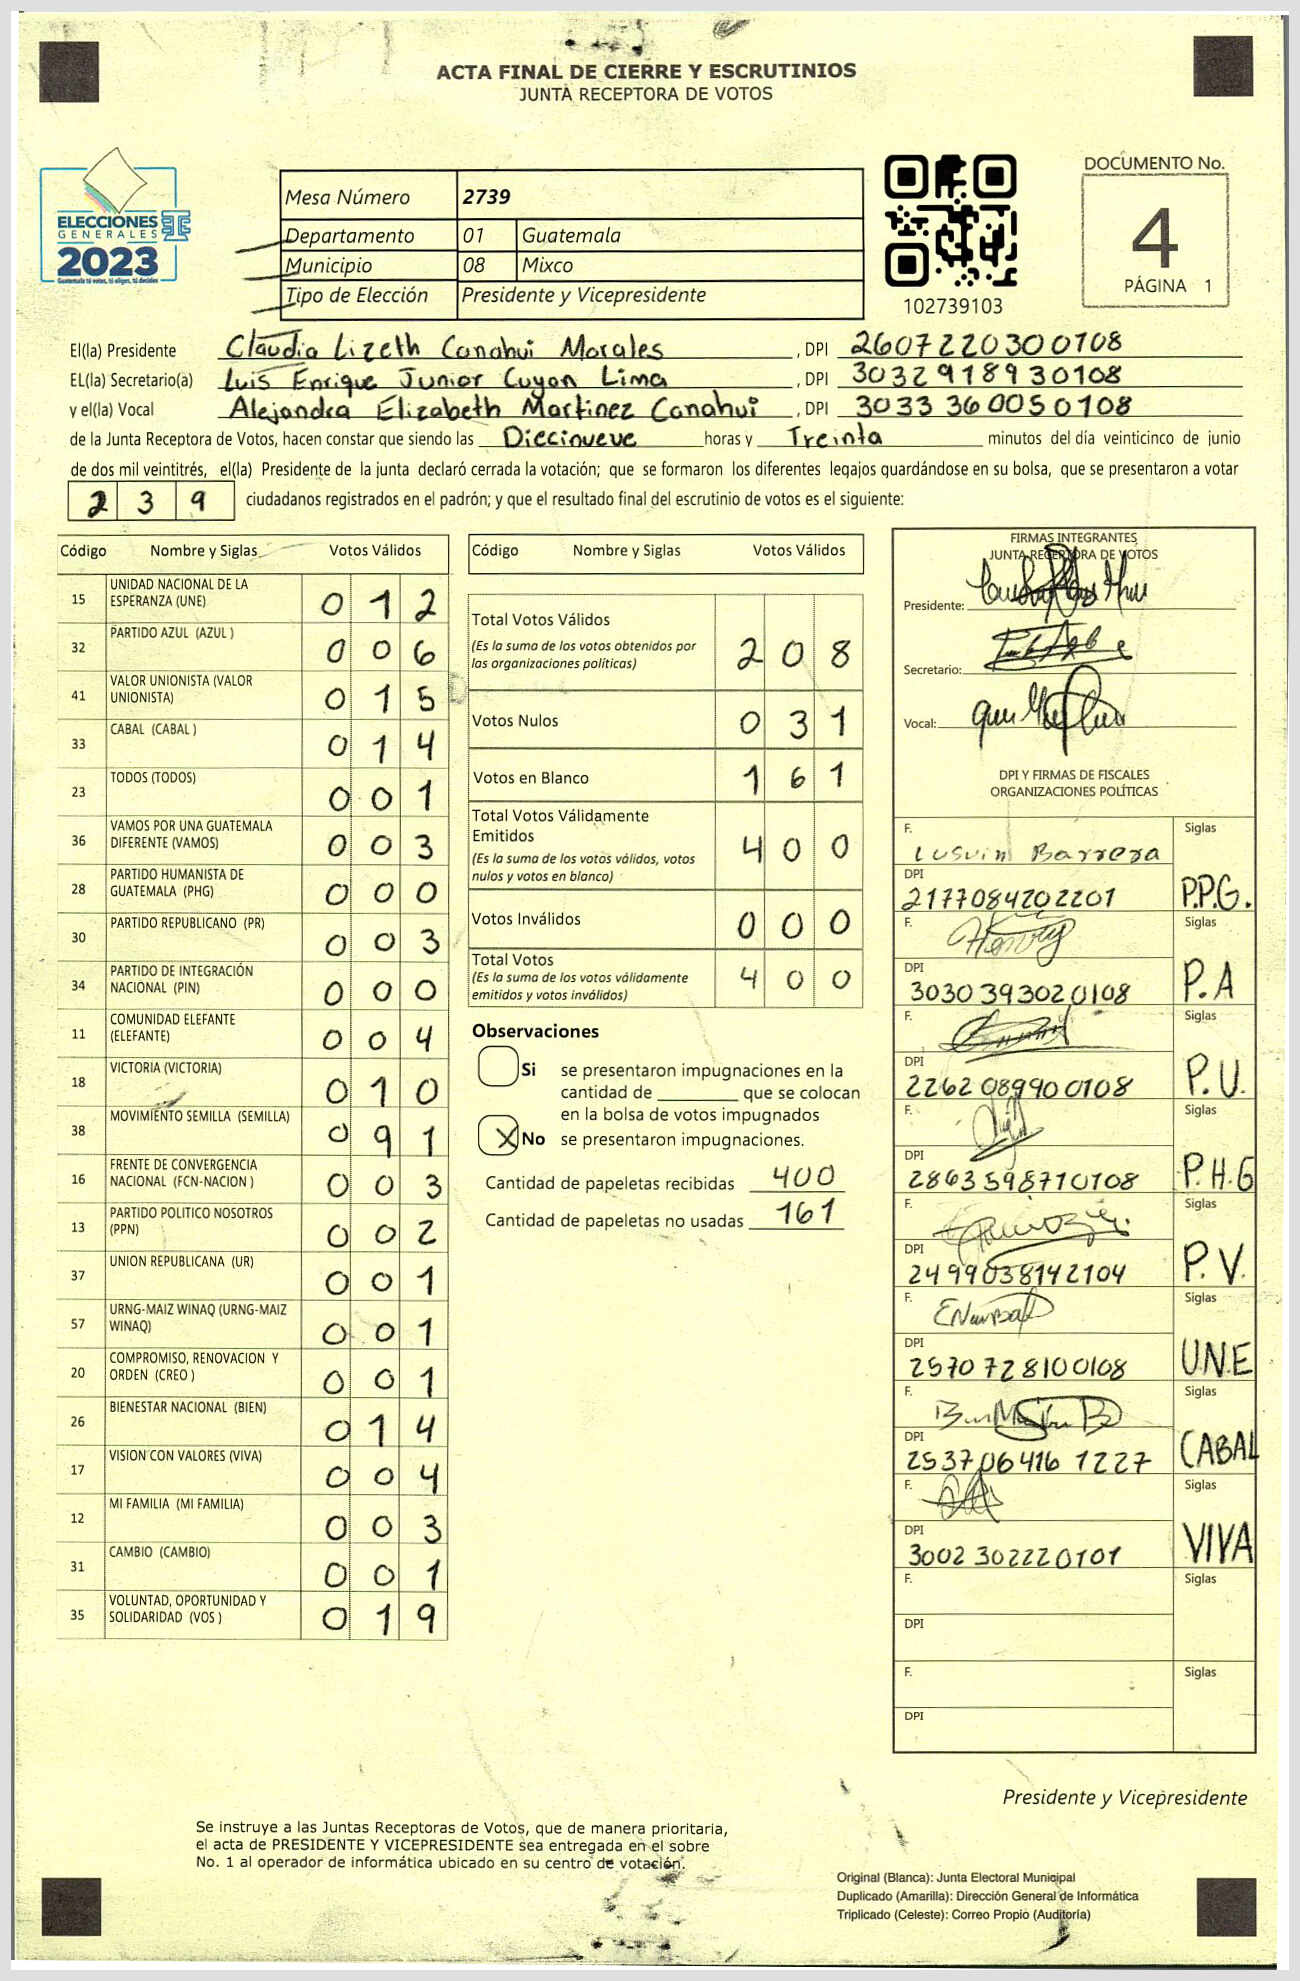 ACTA FINAL DE CIERRE Y ESCRUTINIOS
JUNTA RECEPTORA DE VOTOS
ELECCIONES
GENERALES
2023
Guatemala tú votas, tú eliges, tú decides
Mesa Número 2739
Departamento 01 Guatemala
Municipio 08 Mixco
Tipo de Elección Presidente y Vicepresidente
102739103
DOCUMENTO No.
4
PÁGINA 1
El(la) Presidente Claudia Lizeth Canahui Morales, DPI 2607220300108
EL(la) Secretario(a) Luis Enrique Junior Cuyan Lima, DPI 3032918930108
y el(la) Vocal Alejandra Elizabeth Martinez Canahui, DPI 3033360050108
de la Junta Receptora de Votos, hacen constar que siendo las Diecinueve horas y Treinta minutos del día veinticinco de junio
de dos mil veintitrés, el(la) Presidente de la junta declaró cerrada la votación; que se formaron los diferentes legajos guardándose en su bolsa, que se presentaron a votar
239 ciudadanos registrados en el padrón; y que el resultado final del escrutinio de votos es el siguiente:
Código Nombre y Siglas Votos Válidos
15 UNIDAD NACIONAL DE LA ESPERANZA (UNE) 012
32 PARTIDO AZUL (AZUL ) 006
41 VALOR UNIONISTA (VALOR UNIONISTA) 015
33 CABAL (CABAL ) 014
23 TODOS (TODOS) 001
36 VAMOS POR UNA GUATEMALA DIFERENTE (VAMOS) 003
28 PARTIDO HUMANISTA DE GUATEMALA (PHG) 000
30 PARTIDO REPUBLICANO (PR) 003
34 PARTIDO DE INTEGRACIÓN NACIONAL (PIN) 000
11 COMUNIDAD ELEFANTE (ELEFANTE) 004
18 VICTORIA (VICTORIA) 010
38 MOVIMIENTO SEMILLA (SEMILLA) 091
16 FRENTE DE CONVERGENCIA NACIONAL (FCN-NACION ) 003
13 PARTIDO POLITICO NOSOTROS (PPN) 002
37 UNION REPUBLICANA (UR) 001
57 URNG-MAIZ WINAQ (URNG-MAIZ WINAQ) 001
20 COMPROMISO, RENOVACION Y ORDEN (CREO ) 001
26 BIENESTAR NACIONAL (BIEN) 014
17 VISION CON VALORES (VIVA) 004
12 MI FAMILIA (MI FAMILIA) 003
31 CAMBIO (CAMBIO) 001
35 VOLUNTAD, OPORTUNIDAD Y SOLIDARIDAD (VOS ) 019
Código Nombre y Siglas Votos Válidos
Total Votos Válidos 208
(Es la suma de los votos obtenidos por
las organizaciones políticas)
Votos Nulos 031
Votos en Blanco 161
Total Votos Válidamente
Emitidos 400
(Es la suma de los votos válidos, votos
nulos y votos en blanco)
Votos Inválidos 000
Total Votos 400
(Es la suma de los votos válidamente
emitidos y votos inválidos)
Observaciones
Si se presentaron impugnaciones en la
cantidad de ________ que se colocan
en la bolsa de votos impugnados
X No se presentaron impugnaciones.
Cantidad de papeletas recibidas 400
Cantidad de papeletas no usadas 161
FIRMAS INTEGRANTES
JUNTA RECEPTORA DE VOTOS
Presidente:
Secretario:
Vocal:
DPI Y FIRMAS DE FISCALES
ORGANIZACIONES POLÍTICAS
F. Lusvin Barrera Siglas
DPI 2177084202201 P.P.G.
F. Henry Siglas
DPI 3030393020108 P.A
F. Siglas
DPI 2262089900108 P.U.
F. Siglas
DPI 2863598710108 P.H.G
F. Siglas
DPI 2499038142104 P.V.
F. Siglas
DPI 2570728100108 U.N.E
F. Siglas
DPI 2537064161227 CABAL
F. Siglas
DPI 3002302220101 VIVA
F. Siglas
DPI
F. Siglas
DPI
Presidente y Vicepresidente
Se instruye a las Juntas Receptoras de Votos, que de manera prioritaria,
el acta de PRESIDENTE Y VICEPRESIDENTE sea entregada en el sobre
No. 1 al operador de informática ubicado en su centro de votación.
Original (Blanca): Junta Electoral Municipal
Duplicado (Amarilla): Dirección General de Informática
Triplicado (Celeste): Correo Propio (Auditoría)